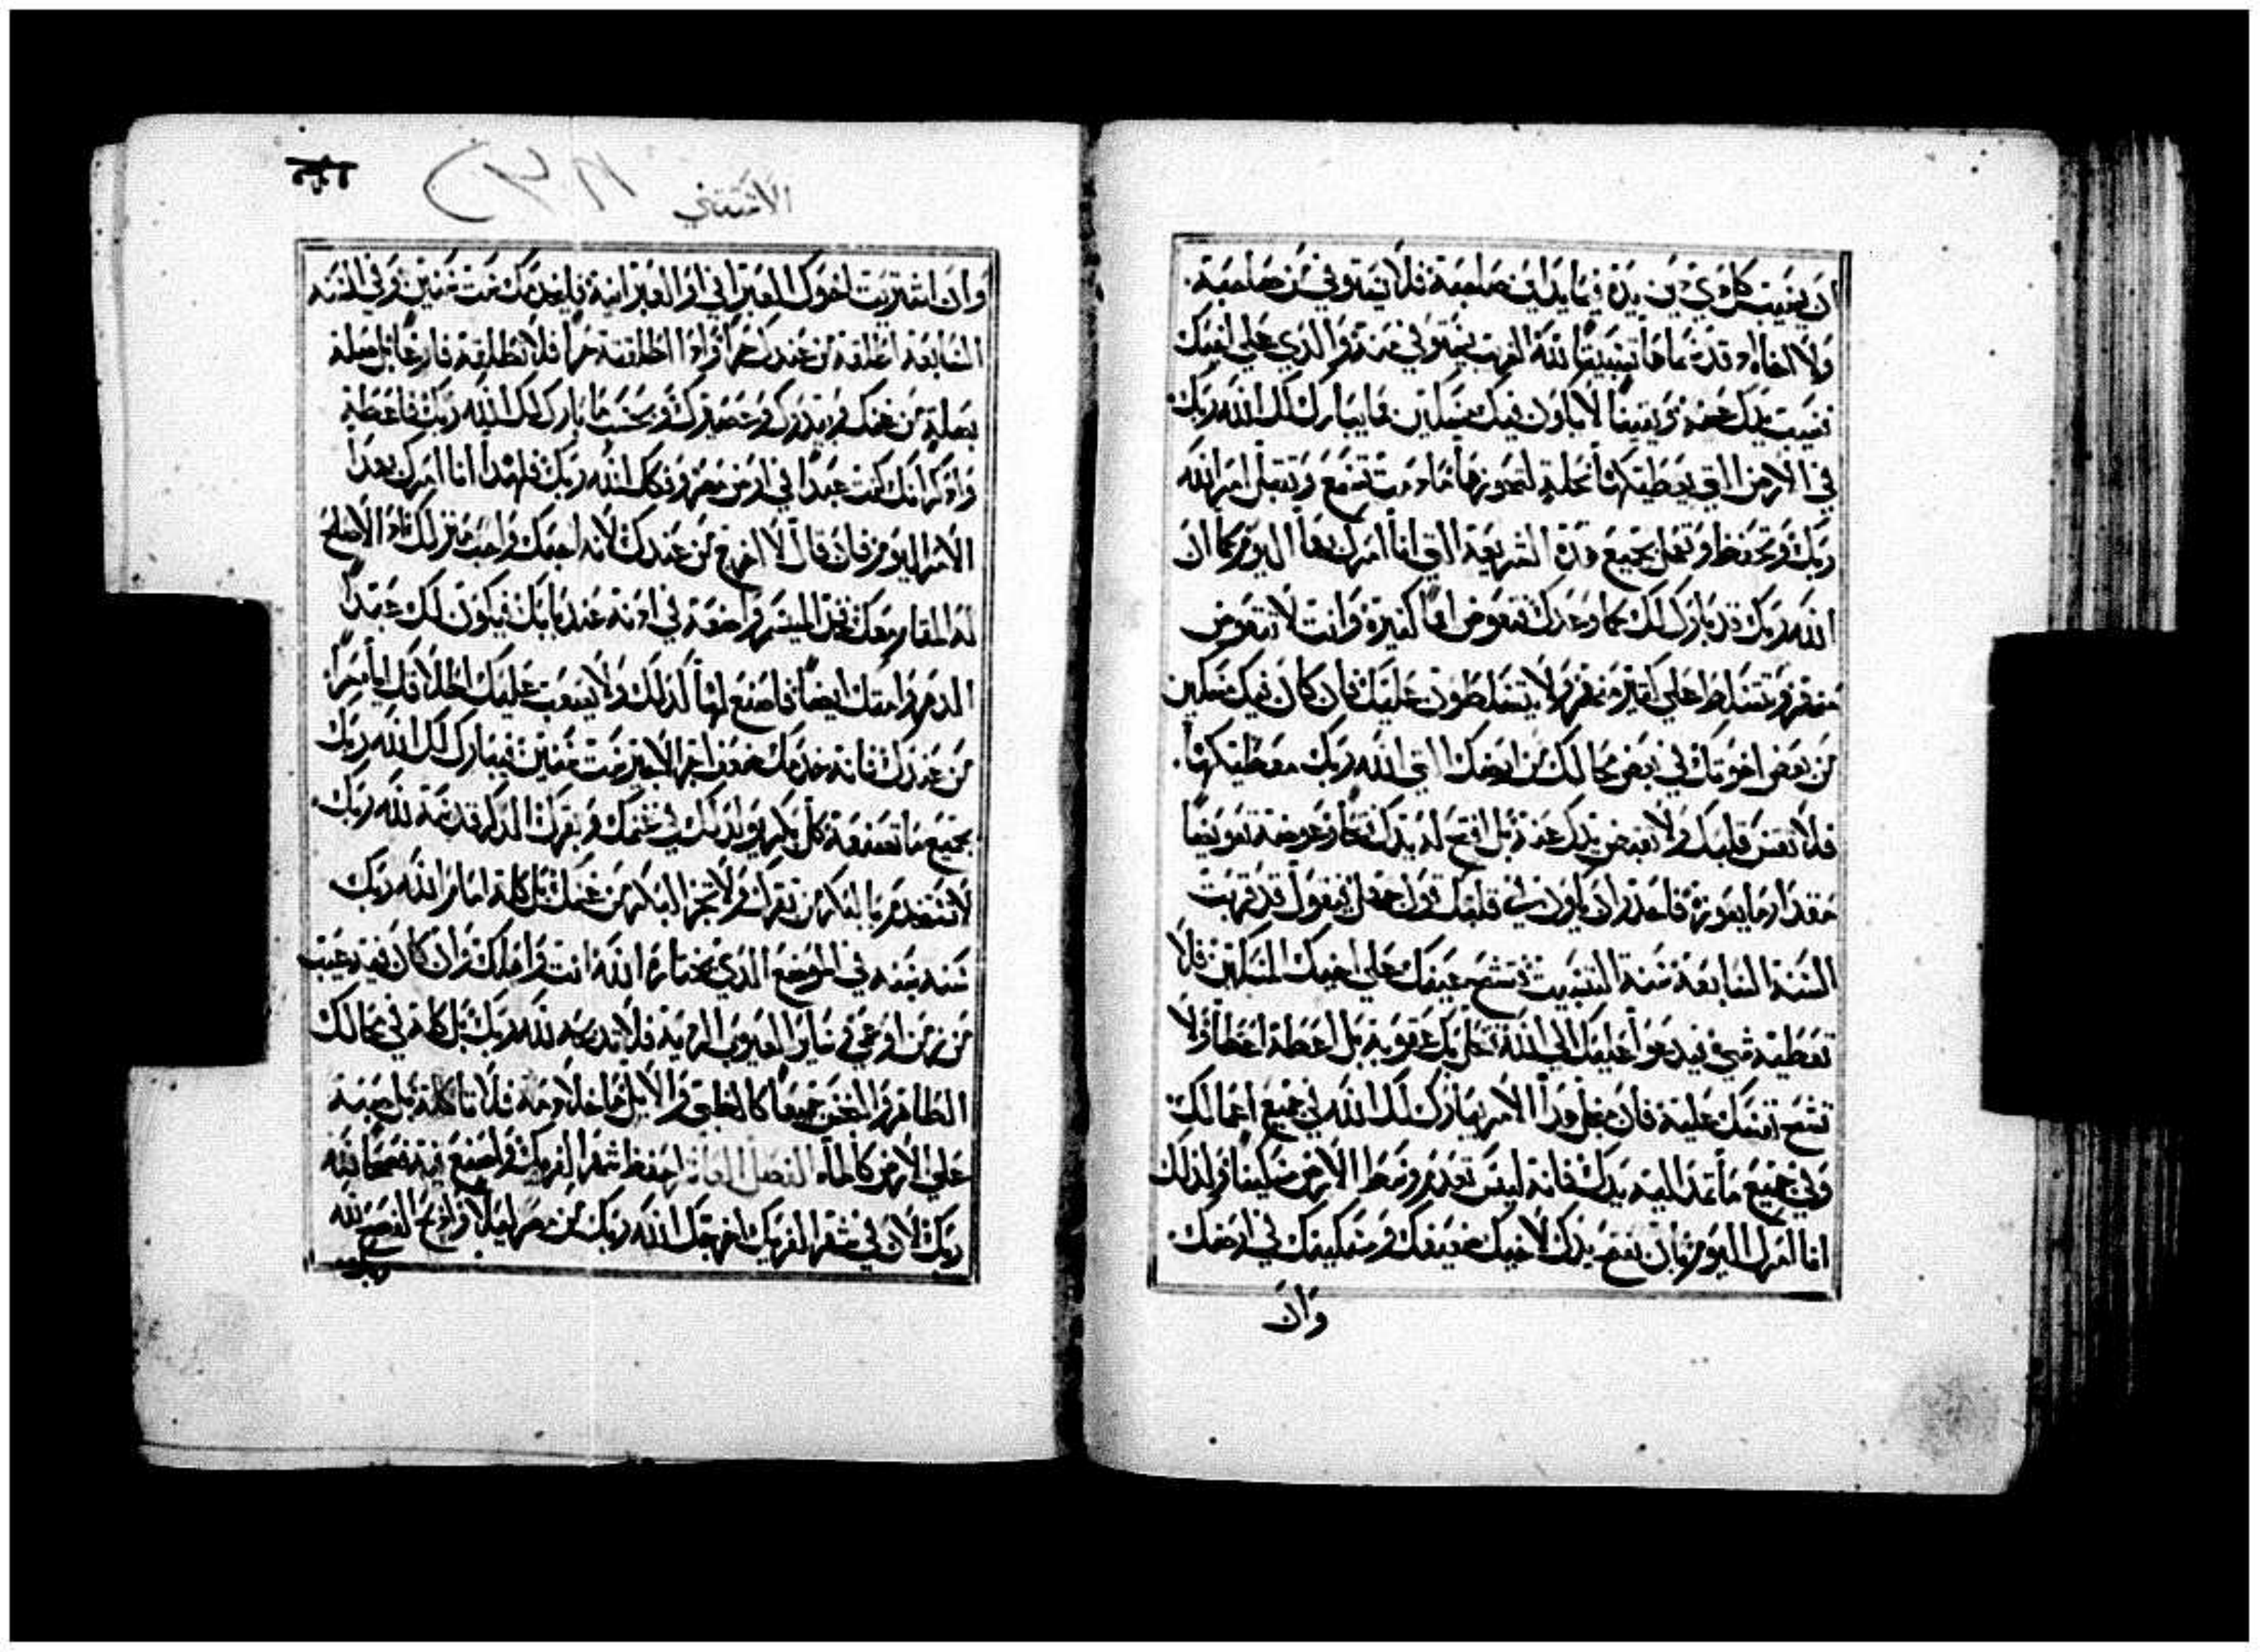 ان يسيب كل ذي دين يده فيما يداين صاحبه فلا يستوفي من صاحبه
ولا اخاه قد دعاها تسييبًا لله الغريب تستوفي منه والذي على اخيك
تسيب يدك عنه لا يكون فيك مسكين مما يبارك لك الله ربك
في الارض التي يعطيكها نحلة لتحوزها اذا سمعت وتقبل امر الله
ربك وتحفظ وتعمل بجميع هذه الشريعة التي انا امرك بها اليوم كما ان
الله ربك قد بارك لك كما وعدك تقرض امما كثيرة وانت لا تقترض
منهم وتتسلط على كثير منهم ولا يتسلطون عليك فان كان فيك مسكين
من بعض اخوتك في بعض محالك من ارضك التي الله ربك معطيكها
فلا تقس قلبك ولا تقبض يدك عنه بل افتح له يدك فتحا وعوضه تعويضا
مقدار ما يعوزه فاحذر ان يكون في قلبك قول جهل فيقول قد قربت
السنة السابعة سنة التسييب فتشح عينك على اخيك المسكين فلا
تعطيه شي فيدعوا عليك الى الله تحل بك عقوبة بل اعطه اعطا ولا
تشح نفسك عليه فان من اجل هذا الامر يبارك لك الله في جميع اعمالك
وفي جميع ما تمد اليه يدك فانه ليس تعدم وسط الارض مسكينا ولذلك
انا امرك اليوم بان تفتح يدك لاخيك ضعيفك ومسكينك في ارضك
وان
الاستثني
٢٣٨
وان اشتريت اخوك العبراني او العبرانية فليخدمك ست سنين وفي السنه
السابعة اطلقه من عندك حرا واذا اطلقته حرا فلا تطلقه فارغا بل صله
بصله من غنمك وبيدرك وعصيرك وبحسب ما بارك لك الله ربك فاعطه
واذكر انك كنت عبدا في ارض مصر وفكك الله ربك فلهذا انا امرك بهذا
الامر اليوم فان قال لا اخرج من عندك لانه احبك واحب منزلك اذ الاصلح
له المقام معك فخذ الميسر واضعه في اذنه عند بابك فيكون لك عبدا
الدهر وامتك ايضا فاصنع لها كذلك ولا يصعب عليك اطلاقك اياه حرا
من عندك فانه خدمك ضعف اجر الاجير ست سنين فيبارك لك الله ربك
بجميع ما تصنعه كل بكر يولد لك في غنمك وبقرك الذكر قدسه لله ربك
لا تستخدم بالبكر من بقرك ولا تجز البكر من غنمك بل كله امام الله ربك
سنه بسنه في الموضع الذي يختاره الله انت واهلك وان كان فيه عيب
من عرج او عمى وسائر العيوب الردية فلا تذبحه لله ربك بل كله في محالك
الطاهر والنجس جميعا كالظبي والايل ما خلا دمه فلا تاكله بل صبه
على الارض كالماء الفصل احفظ شهر الفريك واصنع فيه فصحا لله
ربك لان في شهر الفريك اخرجك الله ربك من مصر ليلا واذبح الفصح لله